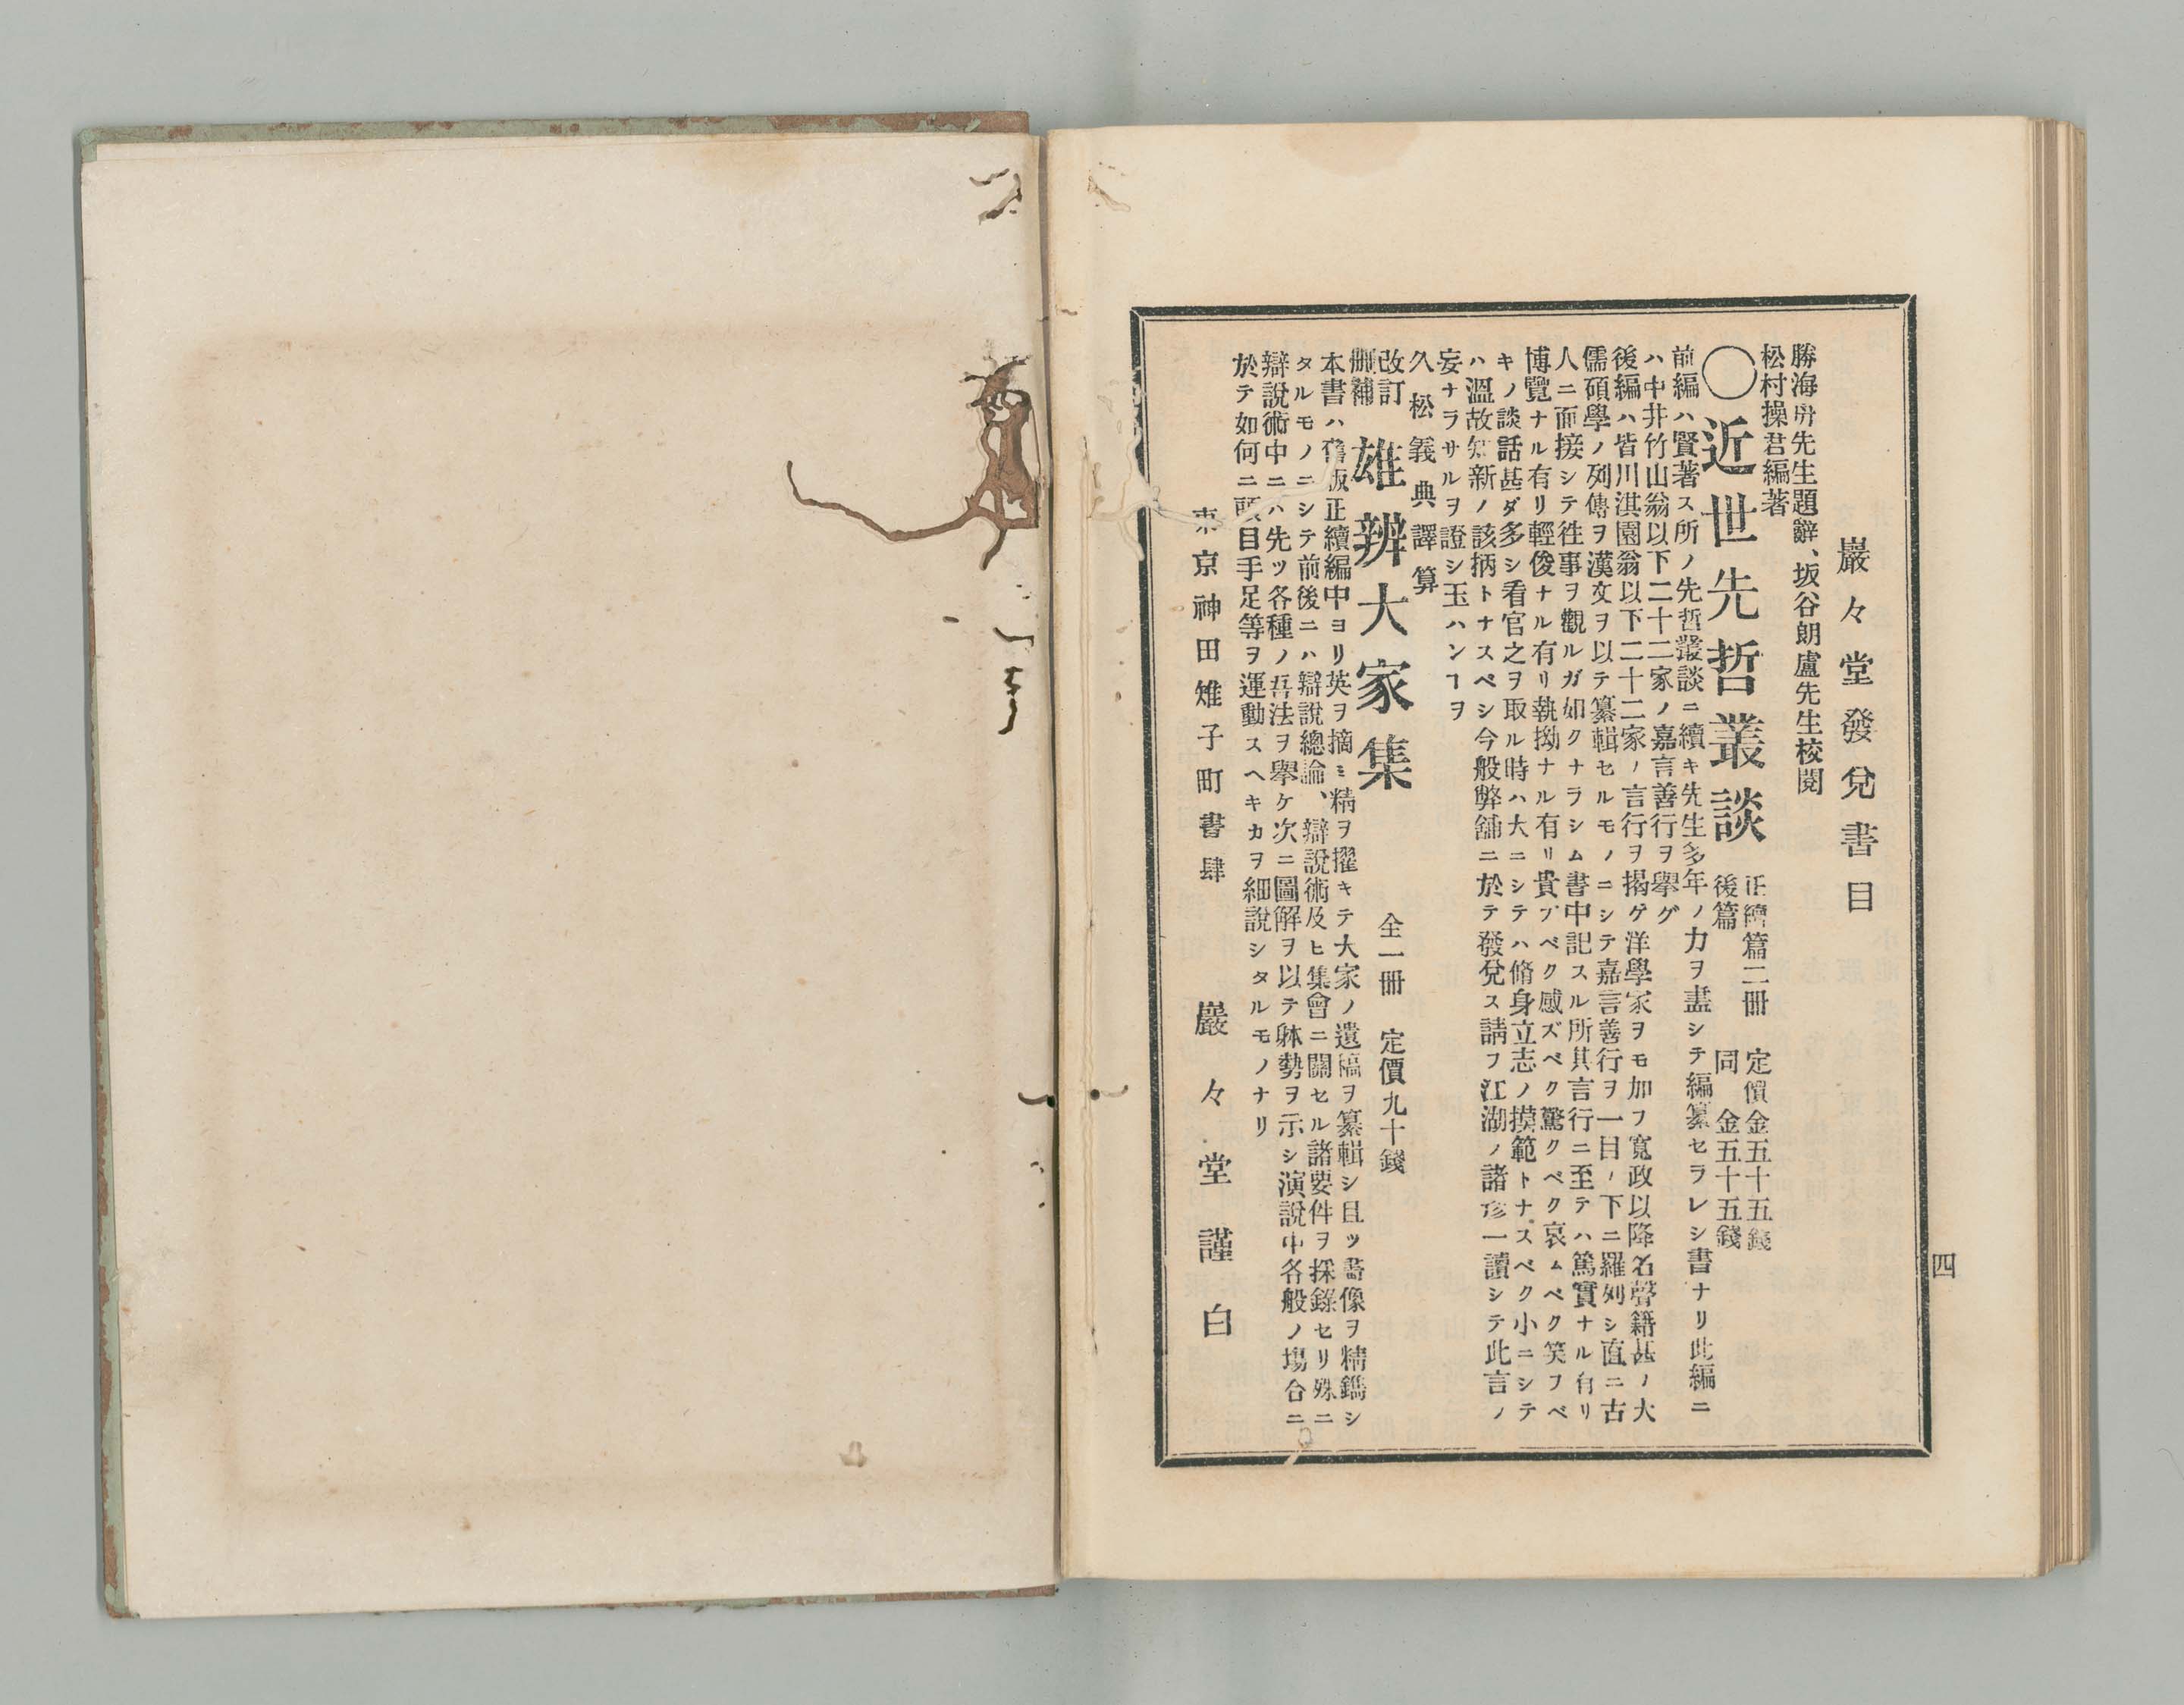 巖々堂發兌書目
勝海舟先生題辭、坂谷朗盧先生校閲
松村操君編著
〇近世先哲叢談 正續篇二冊 定價金五十五錢
後篇 同 金五十五錢
前編ハ賢著ス所ノ先哲叢談ニ續キ先生多年ノ力ヲ盡シテ編纂セラレシ書ナリ此編ニ
ハ中井竹山翁以下二十二家ノ嘉言善行ヲ擧グ
後編ハ皆川淇園翁以下二十二家ノ言行ヲ揭ゲ洋學家ヲモ加フ寛政以降名聲籍甚ノ大
儒碩學ノ列傳ヲ漢文ヲ以テ纂輯セルモノニシテ嘉言善行ヲ一目ノ下ニ羅列シ直ニ古
人ニ面接シテ徃事ヲ觀ルガ如クナラシム書中記スル所其言行ニ至テハ篤實ナル有リ
博覽ナル有リ輕俊ナル有リ執拗ナル有リ貴ブベク感ズベク驚クベク哀ムベク笑フベ
キノ談話甚ダ多シ看官之ヲ取ル時ハ大ニシテハ脩身立志ノ摸範トナスベク小ニシテ
ハ溫故知新ノ該柄トナスベシ今般弊舖ニ於テ發兌ス請フ江湖ノ諸彦一讀シテ此言ノ
妄ナラサルヲ證シ玉ハンヿヲ
久松義典譯算
改訂
刪補 雄辨大家集 全一冊 定價九十錢
本書ハ舊版正續編中ヨリ英ヲ摘ミ精ヲ擢キテ大家ノ遺稿ヲ纂輯シ且ツ畵像ヲ精鐫シ
タルモノニシテ前後ニハ辯說總論、辯說術及ヒ集會ニ關セル諸要件ヲ採錄セリ殊ニ
辯說術中ニハ先ツ各種ノ吾法ヲ擧ケ次ニ圖解ヲ以テ躰勢ヲ示シ演說中各般ノ塲合ニ
於テ如何ニ頭目手足等ヲ運動スヘキカヲ細說シタルモノナリ
東京神田雉子町書肆 巖々堂謹白
四